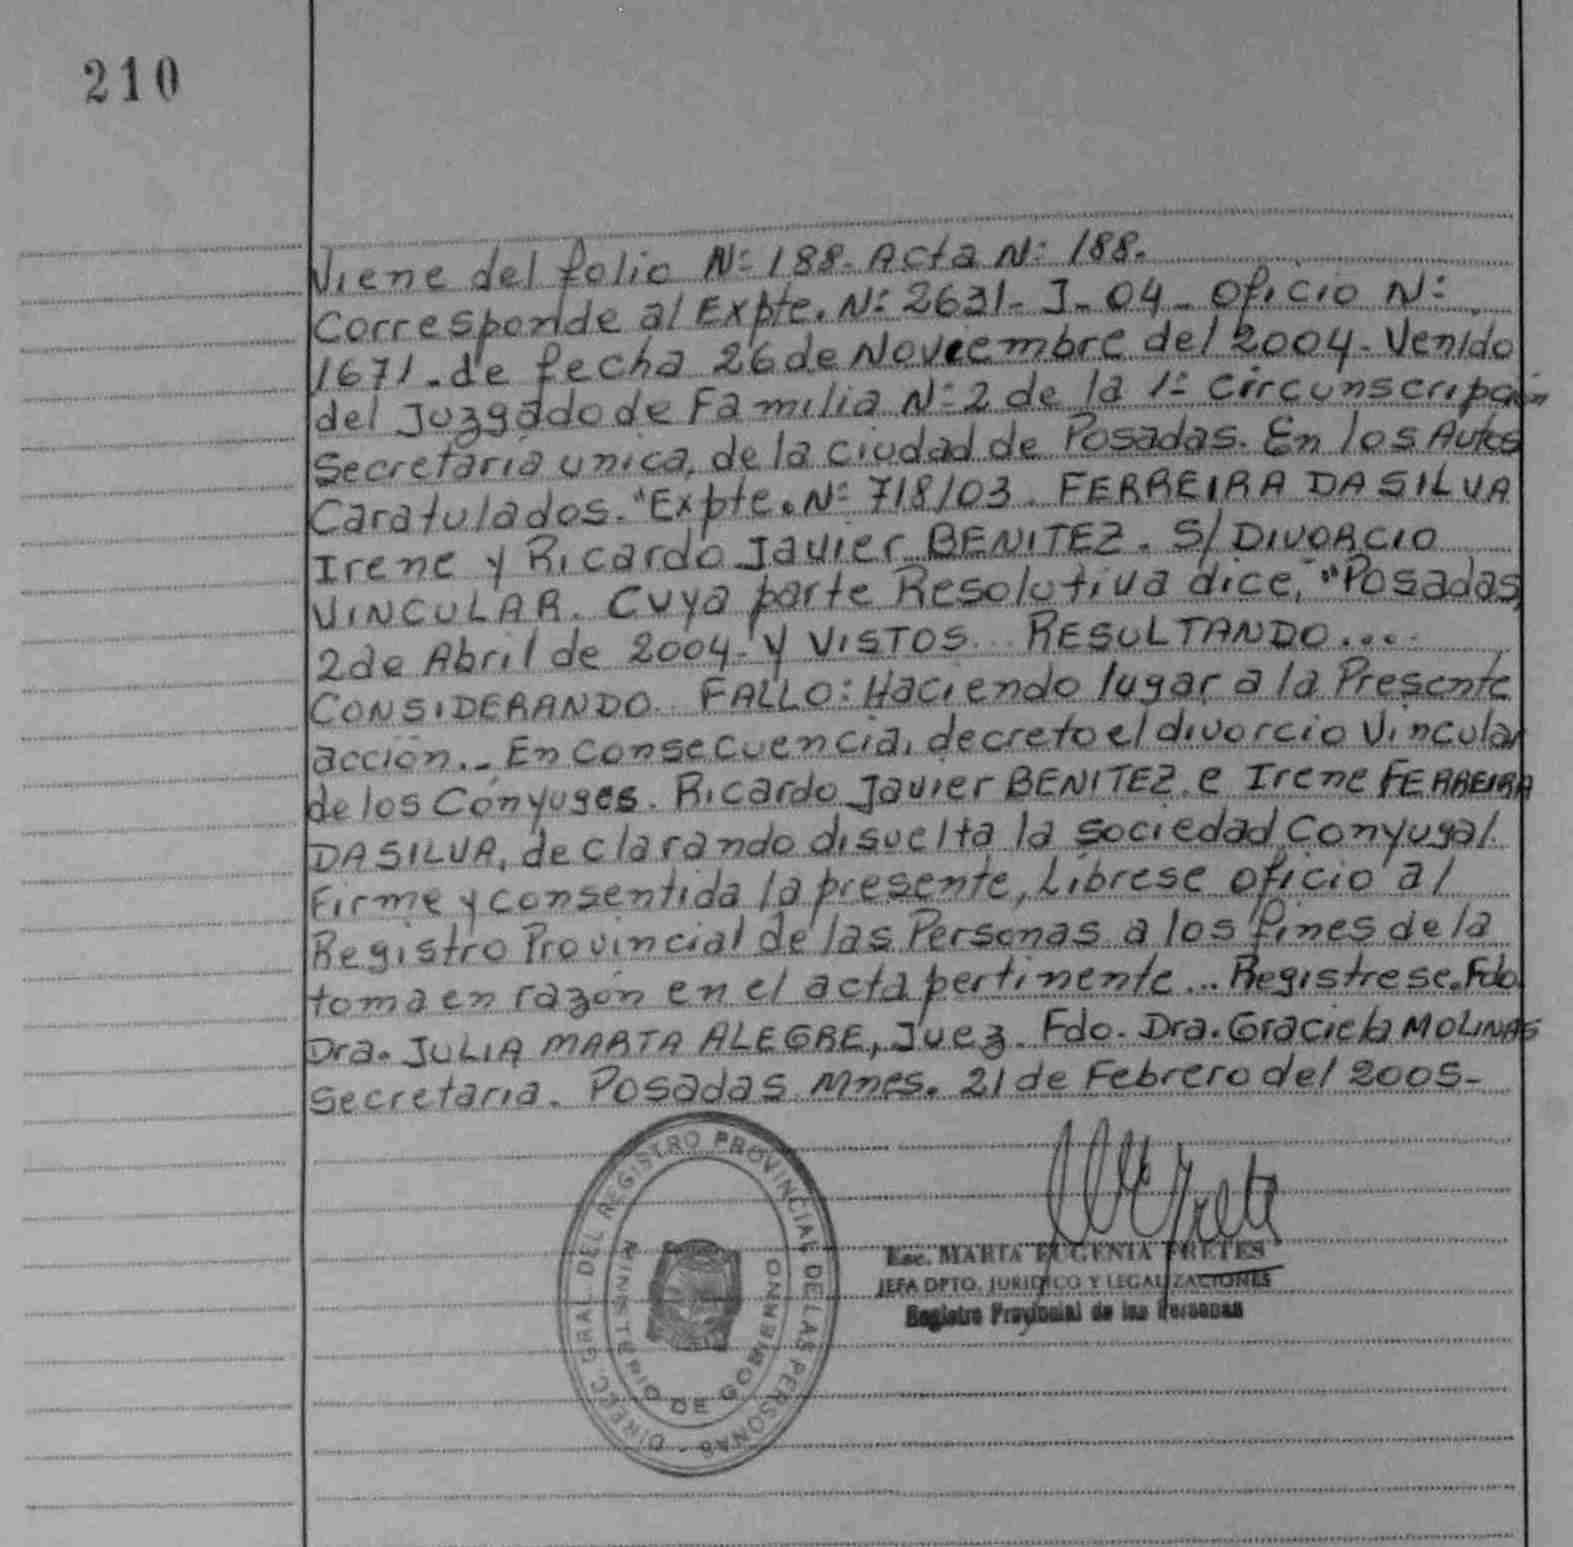 210
Viene del folio Nº 188. Acta Nº 188.
Corresponde al Expte. Nº 2631-J-04- Oficio Nº
1671. de fecha 26 de Noviembre del 2004- Venido
del Juzgado de Familia Nº 2 de la 1º Circunscripción
Secretaria unica, de la ciudad de Posadas. En los Autos
Caratulados. "Expte. Nº 718/03. FERREIRA DA SILVA
Irene y Ricardo Javier BENITEZ. S/ DIVORCIO
VINCULAR. Cuya parte Resolutiva dice, "Posadas,
2 de Abril de 2004- Y VISTOS... RESULTANDO....
CONSIDERANDO... FALLO: Haciendo lugar a la Presente
acción.- En consecuencia, decreto el divorcio Vincular
de los Cónyuges. Ricardo Javier BENITEZ e Irene FERREIRA
DA SILVA, declarando disuelta la sociedad Conyugal.
Firme y consentida la presente, Líbrese oficio al
Registro Provincial de las Personas a los fines de la
toma en razón en el acta pertinente... Registrese. Fdo
Dra. JULIA MARTA ALEGRE, Juez. Fdo. Dra. Graciela MOLINAS
Secretaria. Posadas Mnes. 21 de Febrero del 2005-
DIREC. GRAL. DEL REGISTRO PROVINCIAL DE LAS PERSONAS -
MINISTERIO DE GOBIERNO
Esc. MARIA EUGENIA FRETES
JEFA DPTO. JURIDICO Y LEGALIZACIONES
Registro Provincial de las Personas